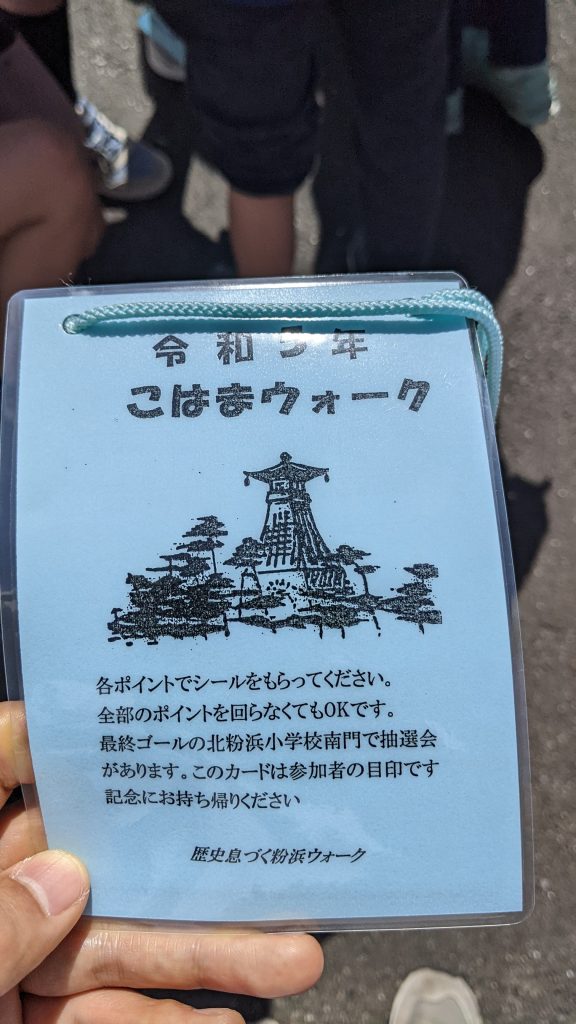 令和5年
こはまウォーク
各ポイントでシールをもらってください。
全部のポイントを回らなくてもOKです。
最終ゴールの北粉浜小学校南門で抽選会
があります。このカードは参加者の目印です
記念にお持ち帰りください
歴史息づく粉浜ウォーク